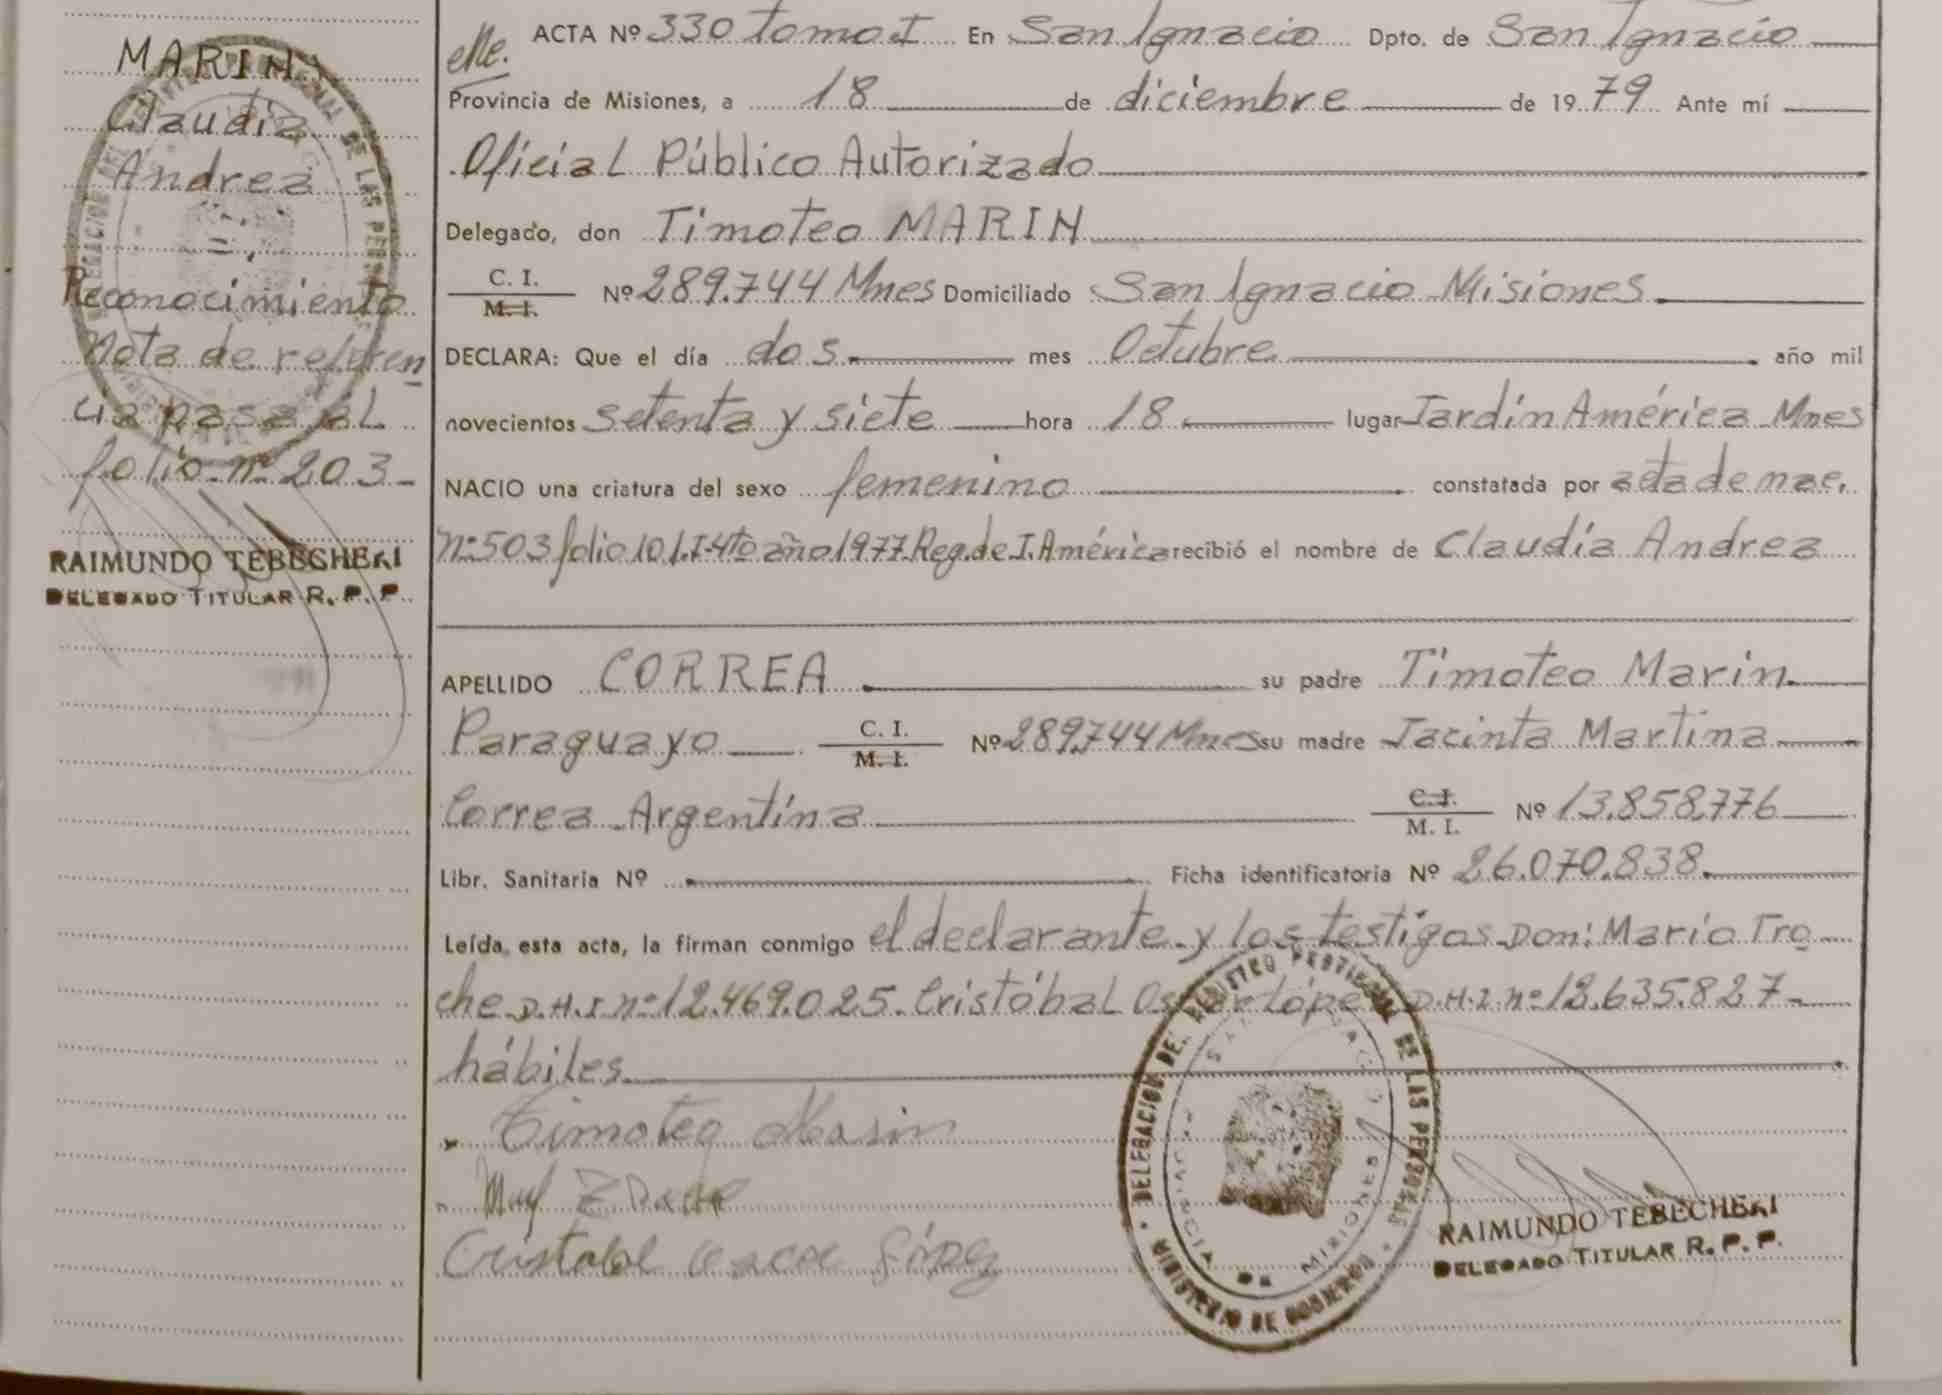 MARIN
Claudia
Andrea
Reconocimiento
Nota de referen
cia pasa al
folio nº 203-
RAIMUNDO TEBECHERI
DELEGADO TITULAR R. P. P.
ACTA Nº 330 tomo I En San Ignacio Dpto. de San Ignacio
Provincia de Misiones, a 18 de diciembre de 1979 Ante mí
Oficial Público Autorizado
Delegado, don Timoteo MARIN
C. I.
M. I. Nº 289.744 Mnes Domiciliado San Ignacio Misiones
DECLARA: Que el día dos mes Octubre año mil
novecientos setenta y siete hora 18 lugar Jardín América Mnes
NACIO una criatura del sexo femenino constatada por acta de nac.
nº 503 folio 101.T-4to año 1977 Reg. de J. América recibió el nombre de Claudia Andrea
APELLIDO CORREA su padre Timoteo Marin
Paraguayo C. I.
M. I. Nº 289.744 Mnes su madre Jacinta Martina
Correa Argentina C. I.
M. I. Nº 13.858.776
Libr. Sanitaria Nº Ficha identificatoria Nº 26.070.838
Leída esta acta, la firman conmigo el declarante y los testigos Don: Mario Tro
che D.N.I nº 12.469.025. Cristóbal Oscar López D.N.I nº 12.635.827-
hábiles
Timoteo Marin
Cristobal Oscar López
DELEGACION DEL REGISTRO PROVINCIAL DE LAS PERSONAS
MINISTERIO DE GOBIERNO
SAN IGNACIO
PROVINCIA DE MISIONES
RAIMUNDO TEBECHERI
DELEGADO TITULAR R. P. P.